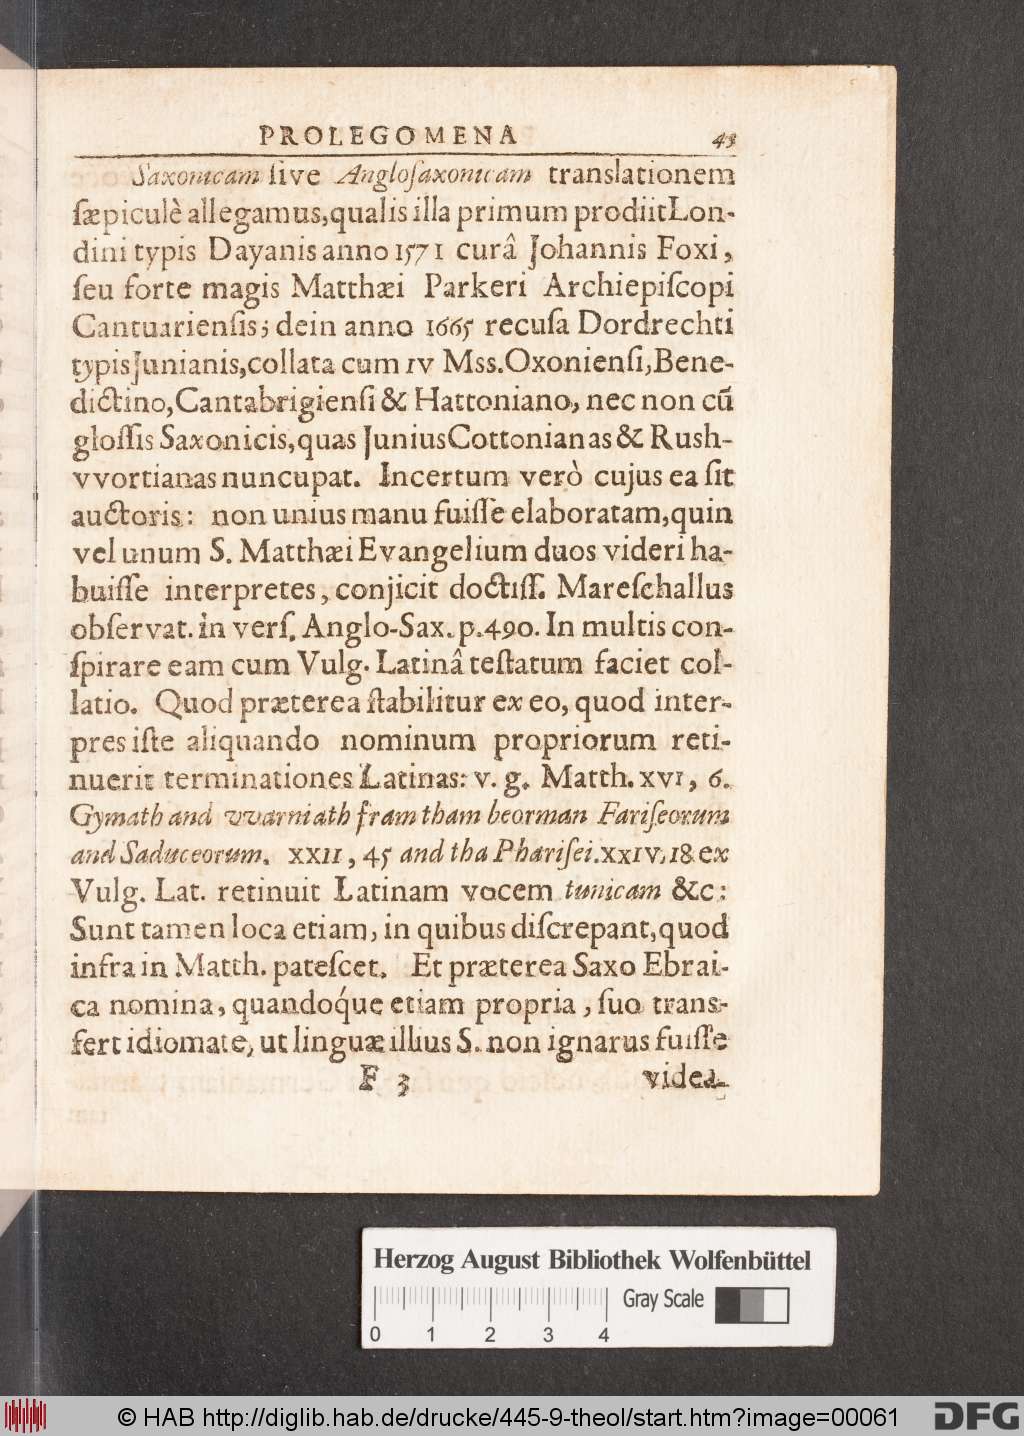 PROLEGOMENA 43
Saxonicam ſive Angloſaxonicam translationem
ſæpiculè allegamus, qualis illa primum prodiit Lon-
dini typis Dayanis anno 1571 curâ Johannis Foxi,
ſeu forte magis Matthæi Parkeri Archiepiſcopi
Cantuarienſis; dein anno 1665 recuſa Dordrechti
typis Junianis, collata cum IV Mss. Oxonienſi, Bene-
dictino, Cantabrigienſi & Hattoniano, nec non cū
gloſſis Saxonicis, quas Junius Cottonianas & Rush-
vvortianas nuncupat. Incertum verò cujus ea ſit
auctoris: non unius manu fuiſſe elaboratam, quin
vel unum S. Matthæi Evangelium duos videri ha-
buiſſe interpretes, conjicit doctiſſ. Mareſchallus
obſervat. in verſ. Anglo-Sax. p. 490. In multis con-
ſpirare eam cum Vulg. Latinâ teſtatum faciet col-
latio. Quod præterea ſtabilitur ex eo, quod inter-
pres iſte aliquando nominum propriorum reti-
nuerit terminationes Latinas: v. g. Matth. XVI, 6.
Gymath and vvarniath fram tham beorman Fariſeorum
and Saduceorum. XXII, 45 and tha Phariſei. XXIV. 18 ex
Vulg. Lat. retinuit Latinam vocem tunicam &c:
Sunt tamen loca etiam, in quibus diſcrepant, quod
infra in Matth. pateſcet. Et præterea Saxo Ebrai-
ca nomina, quandoq́ue etiam propria, ſuo trans-
fert idiomate, ut linguæ illius S. non ignarus fuiſſe
F 3 videa-
Herzog August Bibliothek Wolfenbüttel
Gray Scale
0 1 2 3 4
© HAB http://diglib.hab.de/drucke/445-9-theol/start.htm?image=00061 DFG